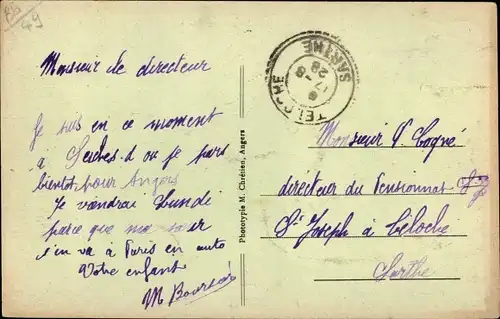 86
49
Monsieur le directeur
Je suis en ce moment
à d ou je pars
bientot pour Angers
Je viendrai Lundi
parce que ma
s'en va à Paris en auto
Votre enfant
M Boursier
Phototypie M. Chrétien, Angers
TELOCHE
17 -8
28
SARTHE
Monsieur P. Cogné
directeur du Pensionnat
St Joseph à Téloche
Sarthe